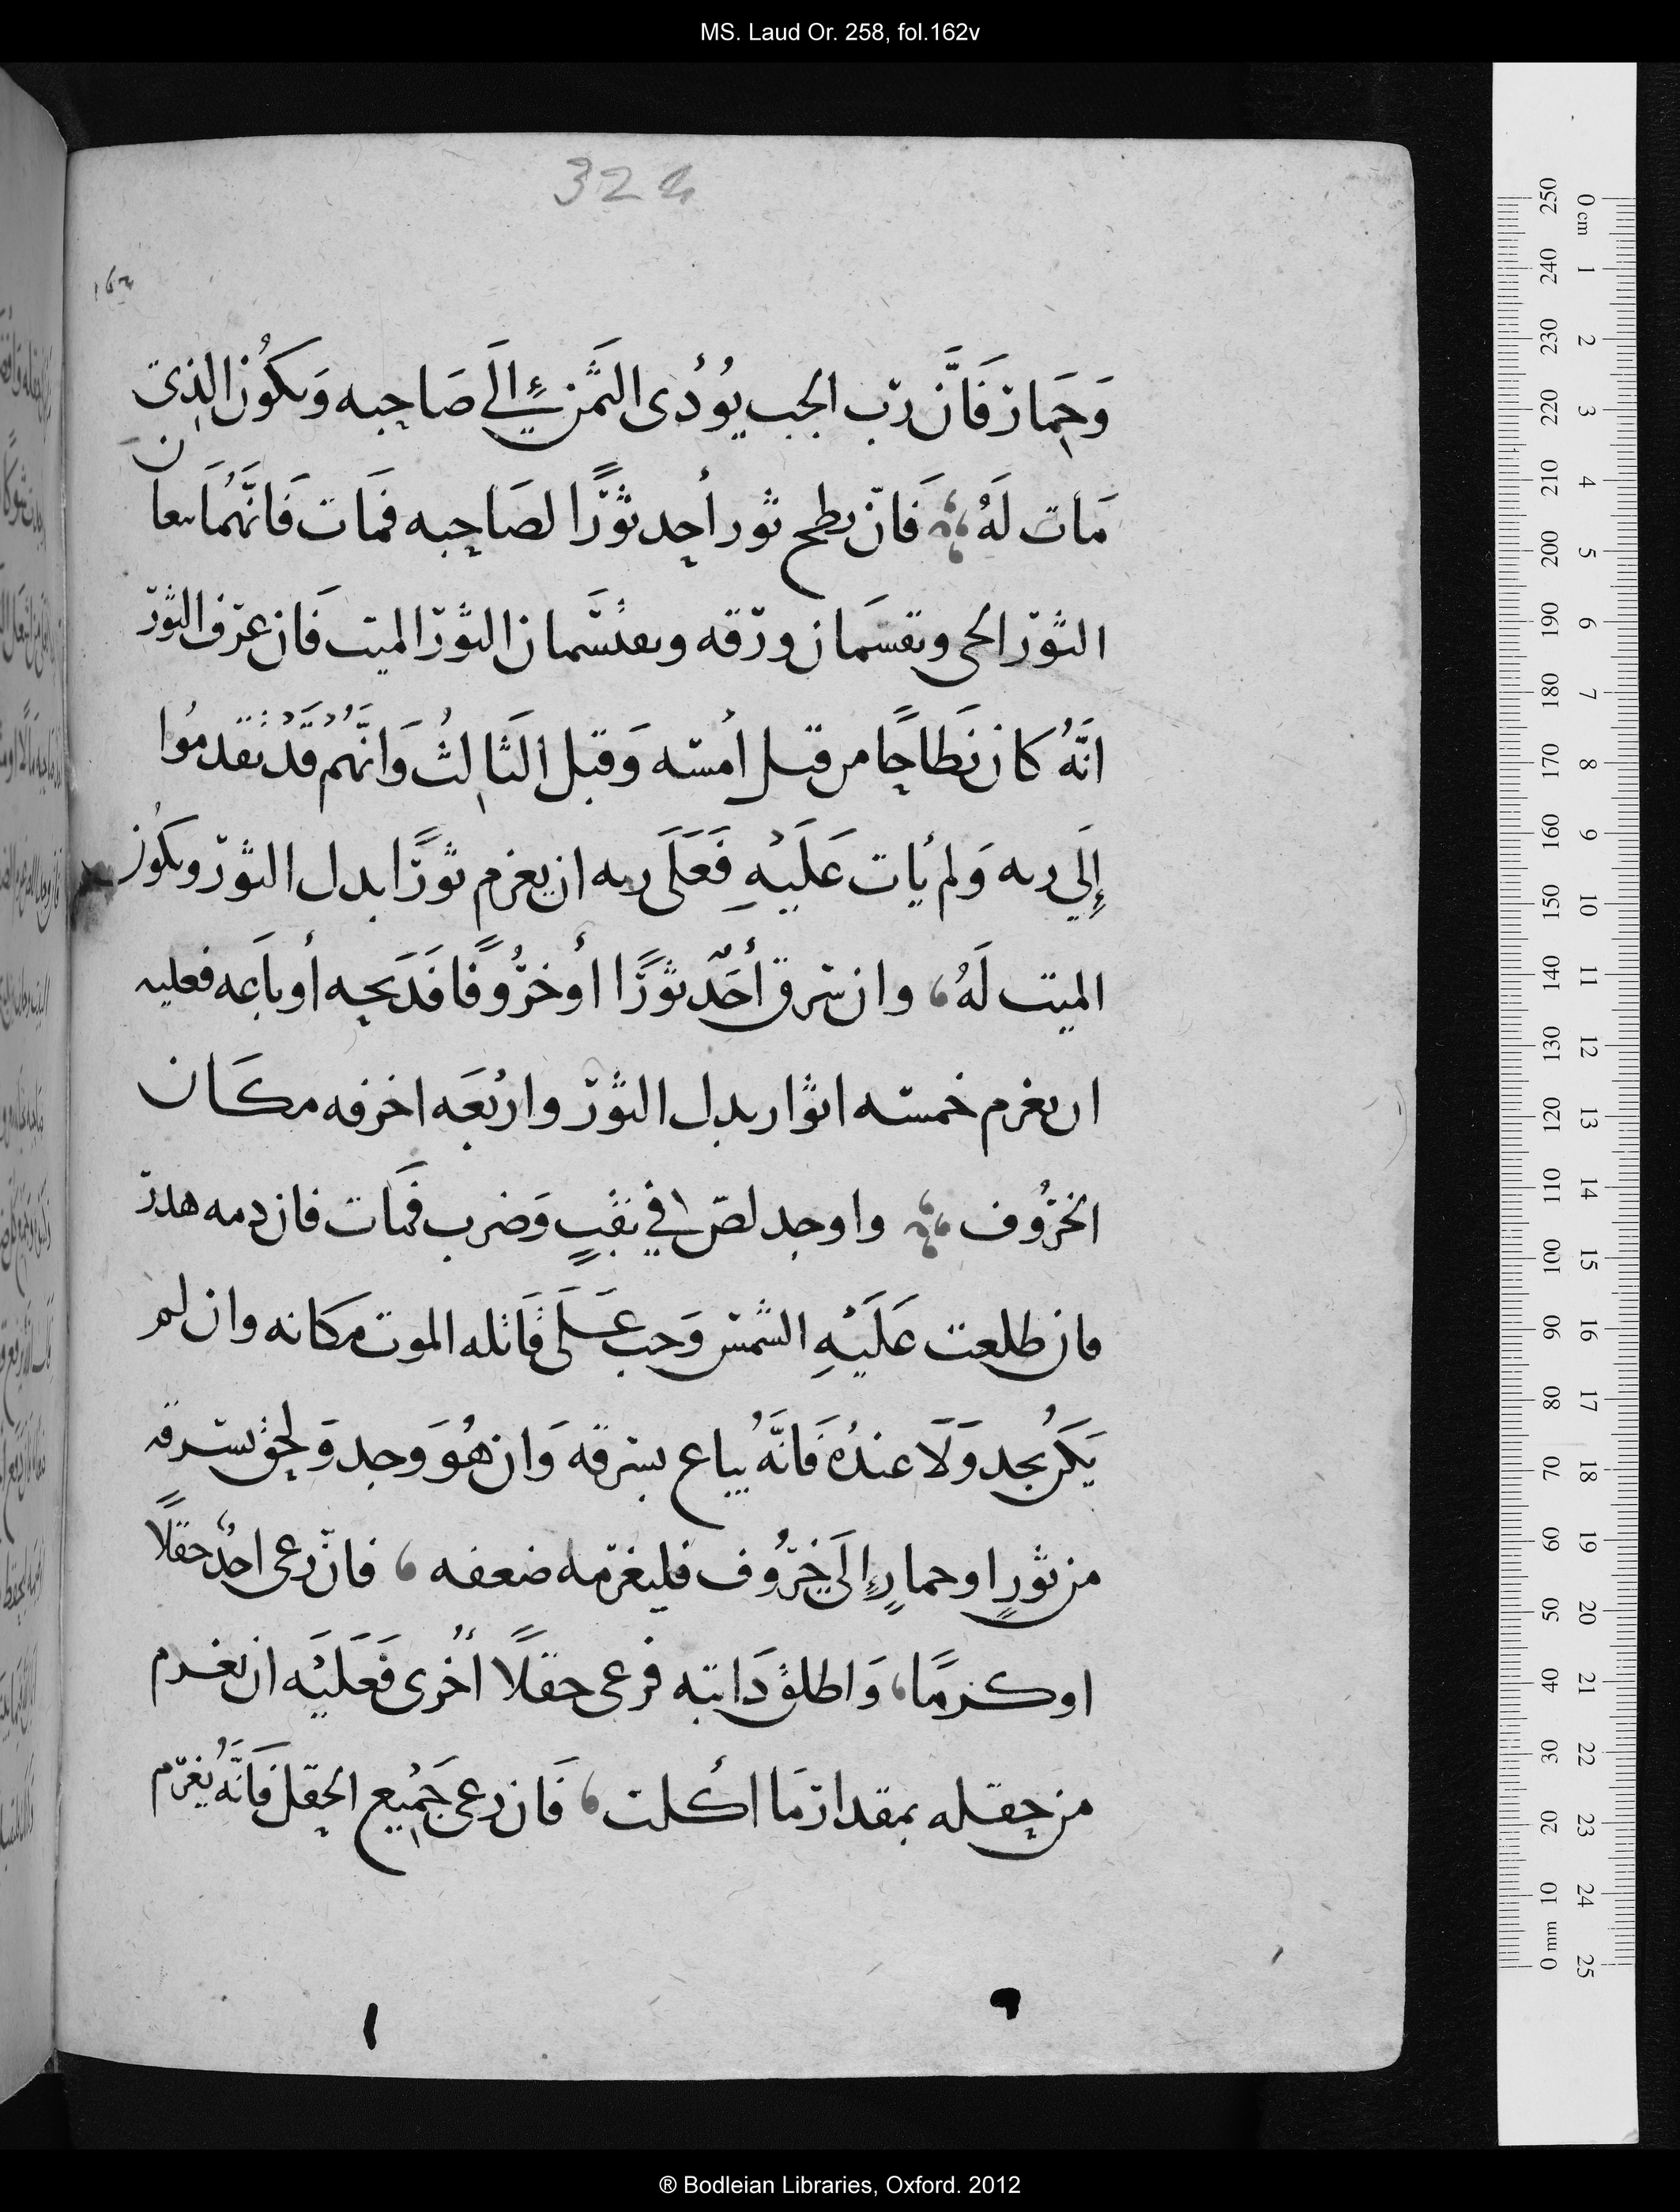 MS. Laud Or. 258, fol.162v
324
162
وَحِمَار فَاَنَّ رَب الجب يُوُدى الثمَن إِلَي صَاحِبه وَيكوُن الذِى
مَات لَهُ فَاَن نطح ثور أحِد ثوَرًا لصَاحِبه فمَات فَانَّهُمَا يبيعان
الثوَر الحى ويقسَمان ورقه ويقتسَمان الثوَر الميت فَان عرَف الثوَر
انَّهُ كان نَطَاحًا من قبل اُمسه وَقبل الثَالِثُ وَانَّهُم قَدْ تقدمُوا
إِلَي ربه وَلم يَأت عَلَيْهِ فَعَلَى ربه ان يغرم ثوَرًا بدل الثوَر ويكوُن
الميت لَهُ وان سَرق أَحَدٌ ثوَرًا أو خرُوفًا فَذَبحه أو بَاعَه فعليه
ان يغرم خمسه اثوار بدل الثوَر واربْعَه اخرفه مكَان
الخرُوف واوجد لصّ ا في نقبٍ وَضرب فمَات فان دمه هدر
فان طلعت عَلَيْهِ الشمس وَجب عَلَى قَاتله الموت مكَانه وان لم
يَكُن يجد وَلَا عندُه فَانَّهُ يباع بسَرقه وَان هُوَ وجد وَلحق بسَرقه
من ثورٍ او حمارٍ إِلَى خرُوف فليغرمه ضعفه فان رعى احدٌ حقلًا
او كرمًا وَاطلق دَابته فرعى حقلًا أُخرى فَعَلَيْه ان يغرم
من حقله بمقدار مَا اكلت فَان رعى جَمِيع الحقل فَانَّهُ يغرم
® Bodleian Libraries, Oxford. 2012